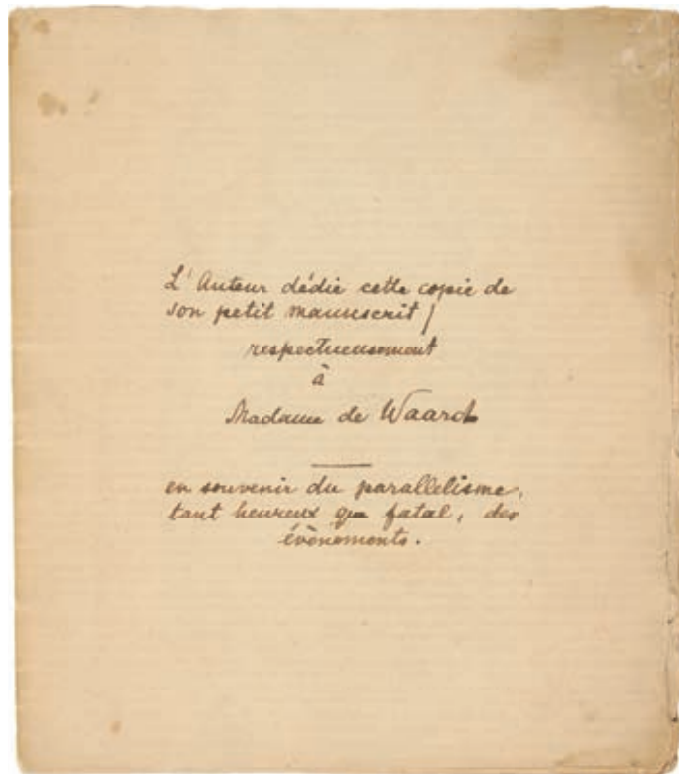 L'Auteur dédie cette copie de
son petit manuscrit /
respectueusement
à
Madame de Waard
en souvenir du parallelisme,
tant heureux que fatal, des
évènements.